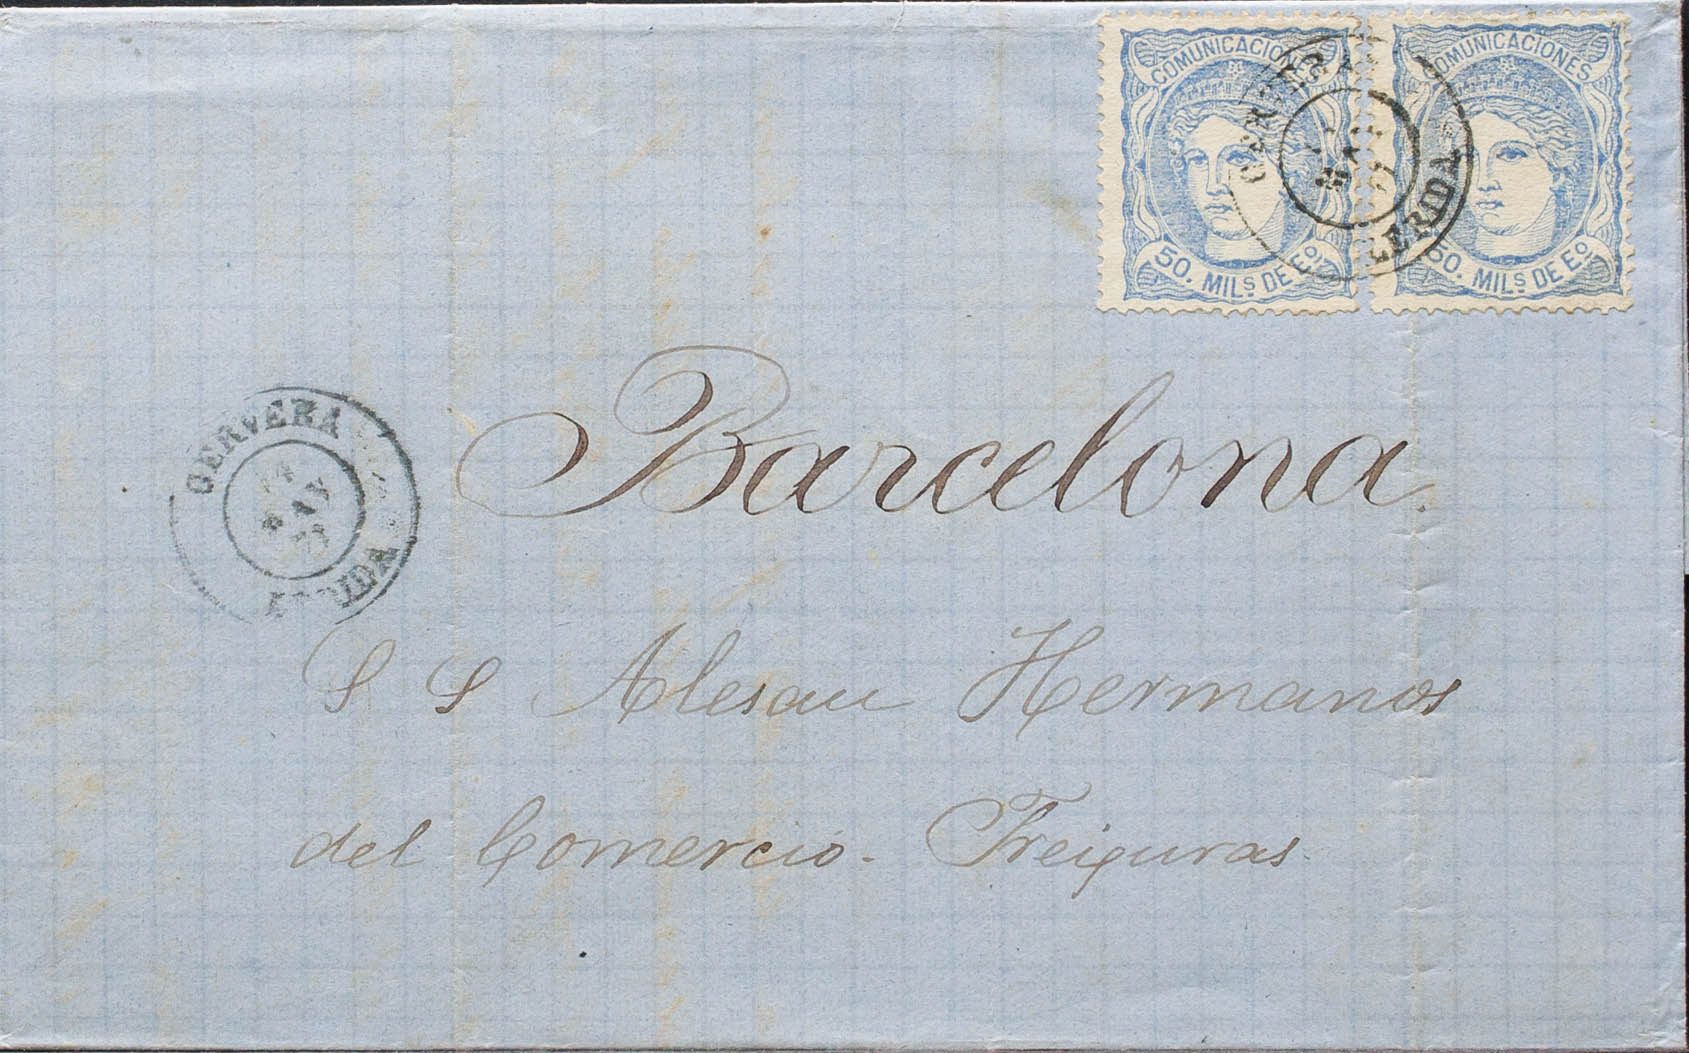 COMUNICACIONES COMUNICACIONES
50. MILS DE Eº 50. MILS DE Eº
CERVERA
LERIDA
Barcelona.
CERVERA
MAY
LERIDA
S S Alesan Hermanos
del Comercio. Freixuras